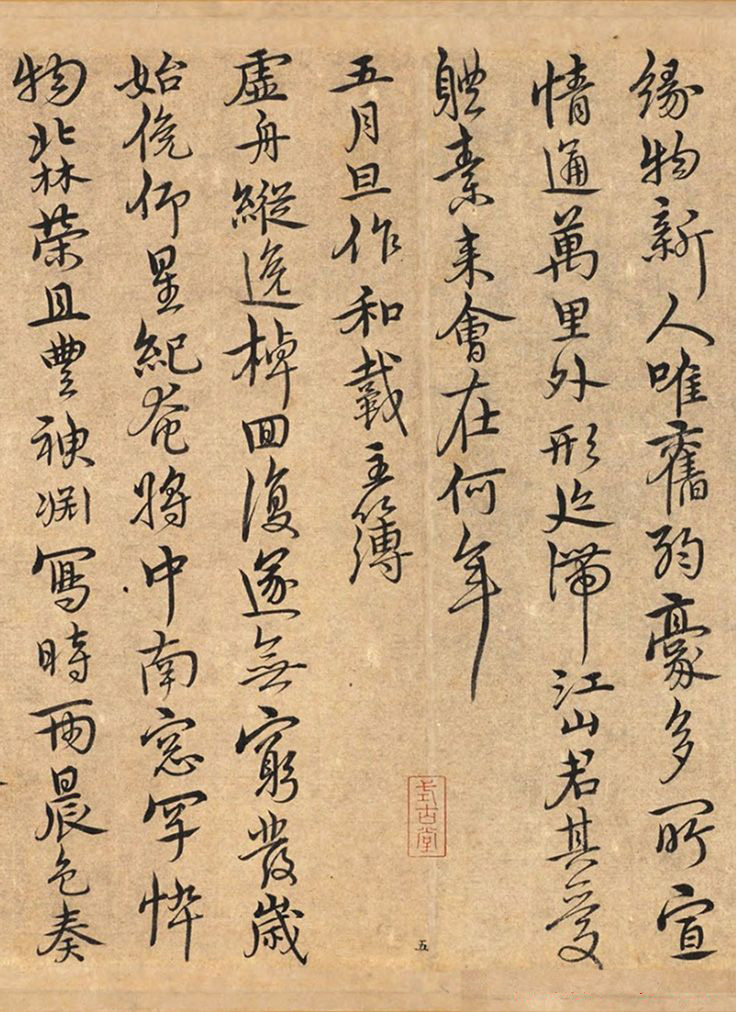 緣物新人唯舊弱豪多所宣
情通萬里外形迹滯江山君其愛
體素来會在何年
五月旦作和戴主簿
虛舟縱逸棹回復遂無窮發歲
始俛仰星紀奄將中南窓罕悴
物北林榮且豐神渊寫時雨晨色奏
式古堂
五